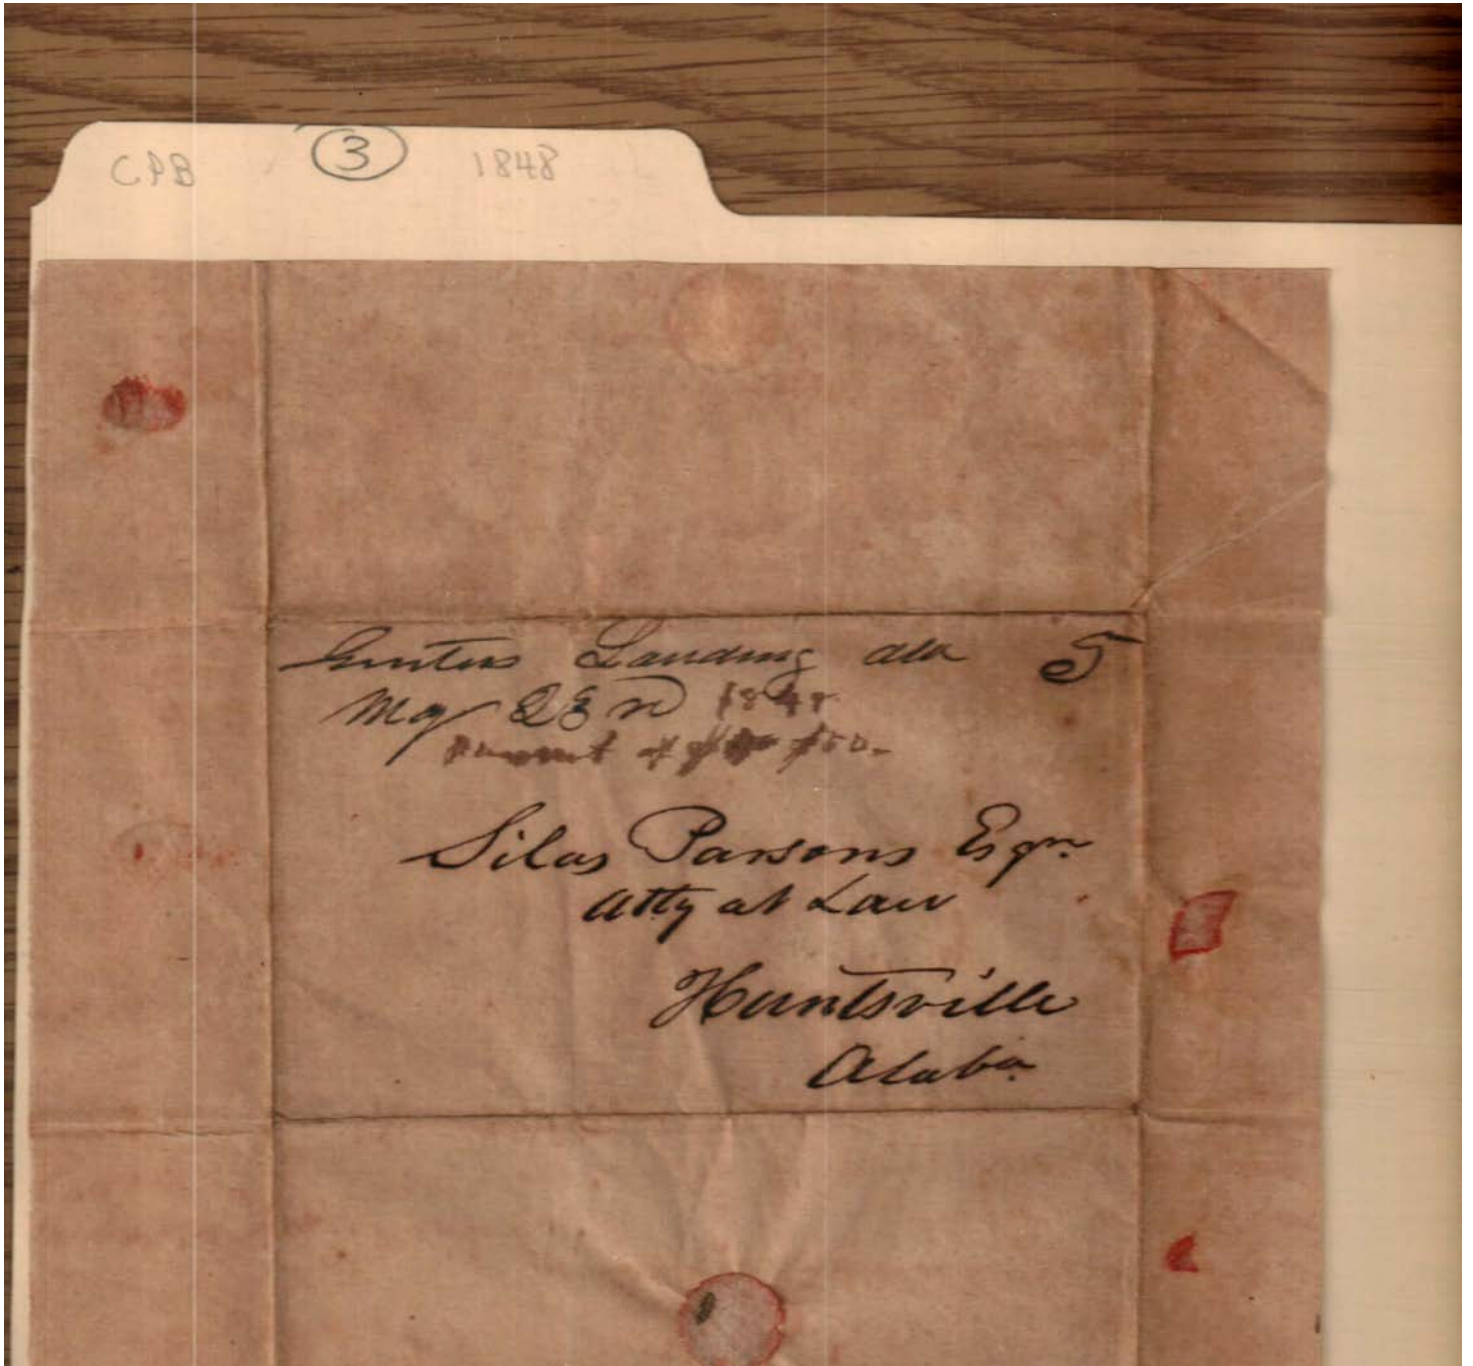 CPB 3 1848
Gunters Landing Ala 5
My 23rd 1848
Silas Parsons Esqr.
Atty at Law
Huntsville
Alaba.